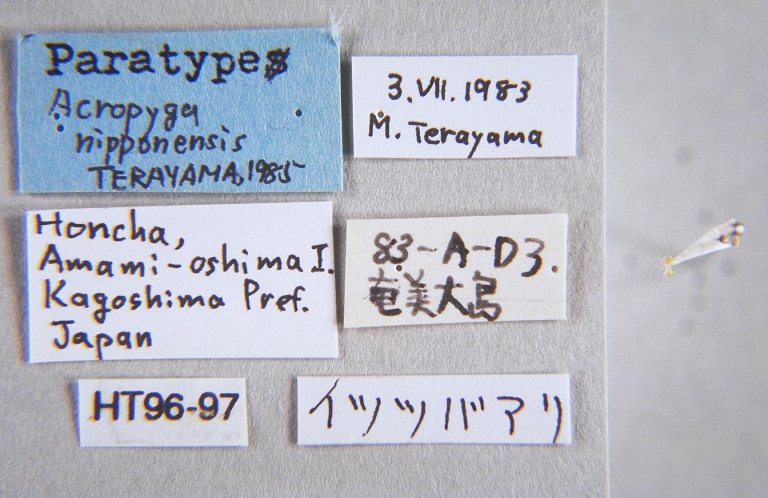 Paratypes
Acropyga
nipponensis
TERAYAMA, 1985
3. VII. 1983
M. Terayama
Honcha,
Amami-oshima I.
Kagoshima Pref.
Japan
83-A-D3.
奄美大島
HT96-97
イツツバアリ